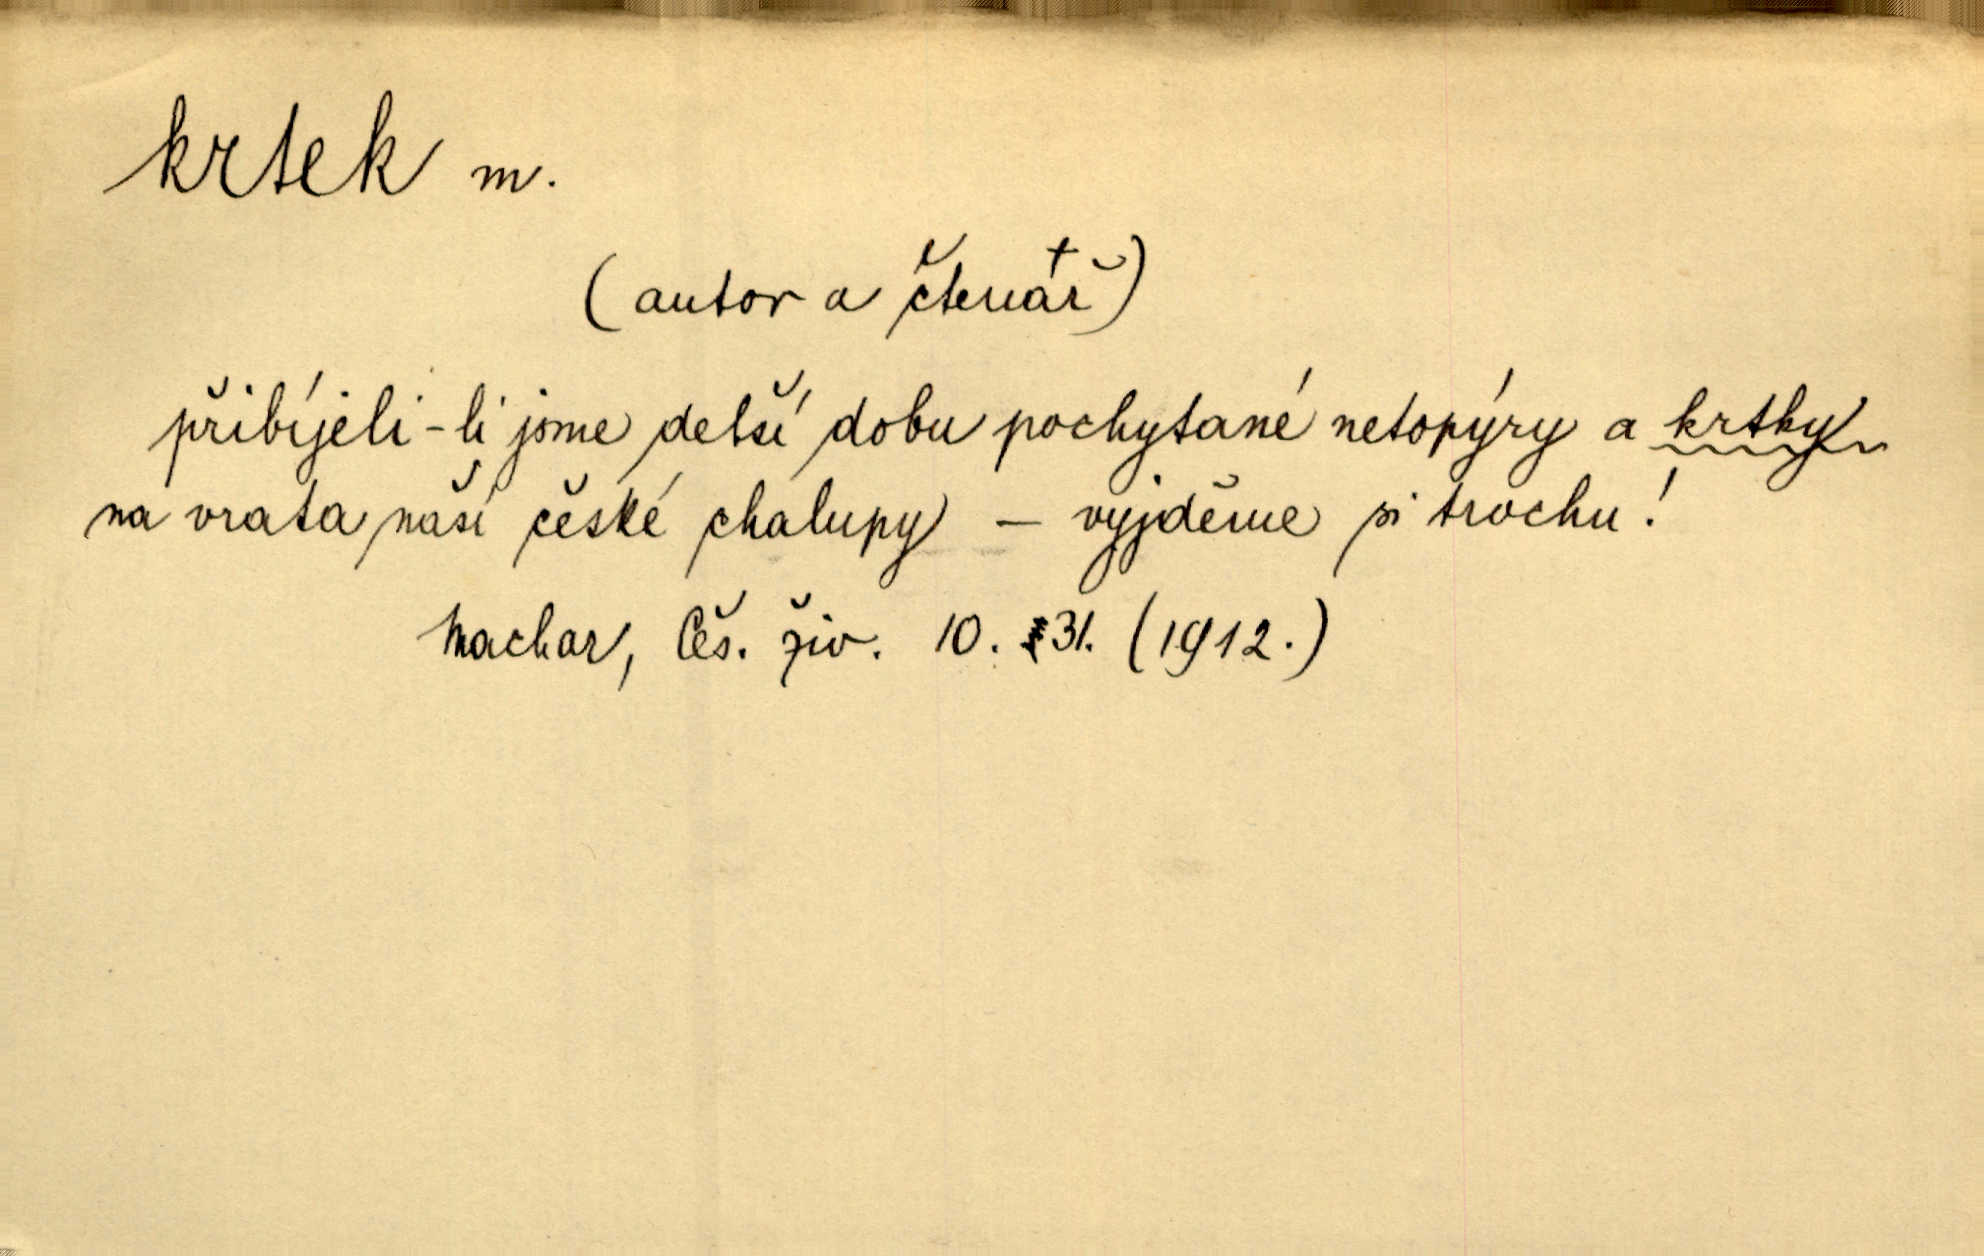 krtek m.
(autor a čtenář)
přibíjeli-li jsme delší dobu pochytané netopýry a krtky
na vrata naší české chalupy – vyjděme si trochu!
Machar, Čes. živ. 10. 31. (1912.)